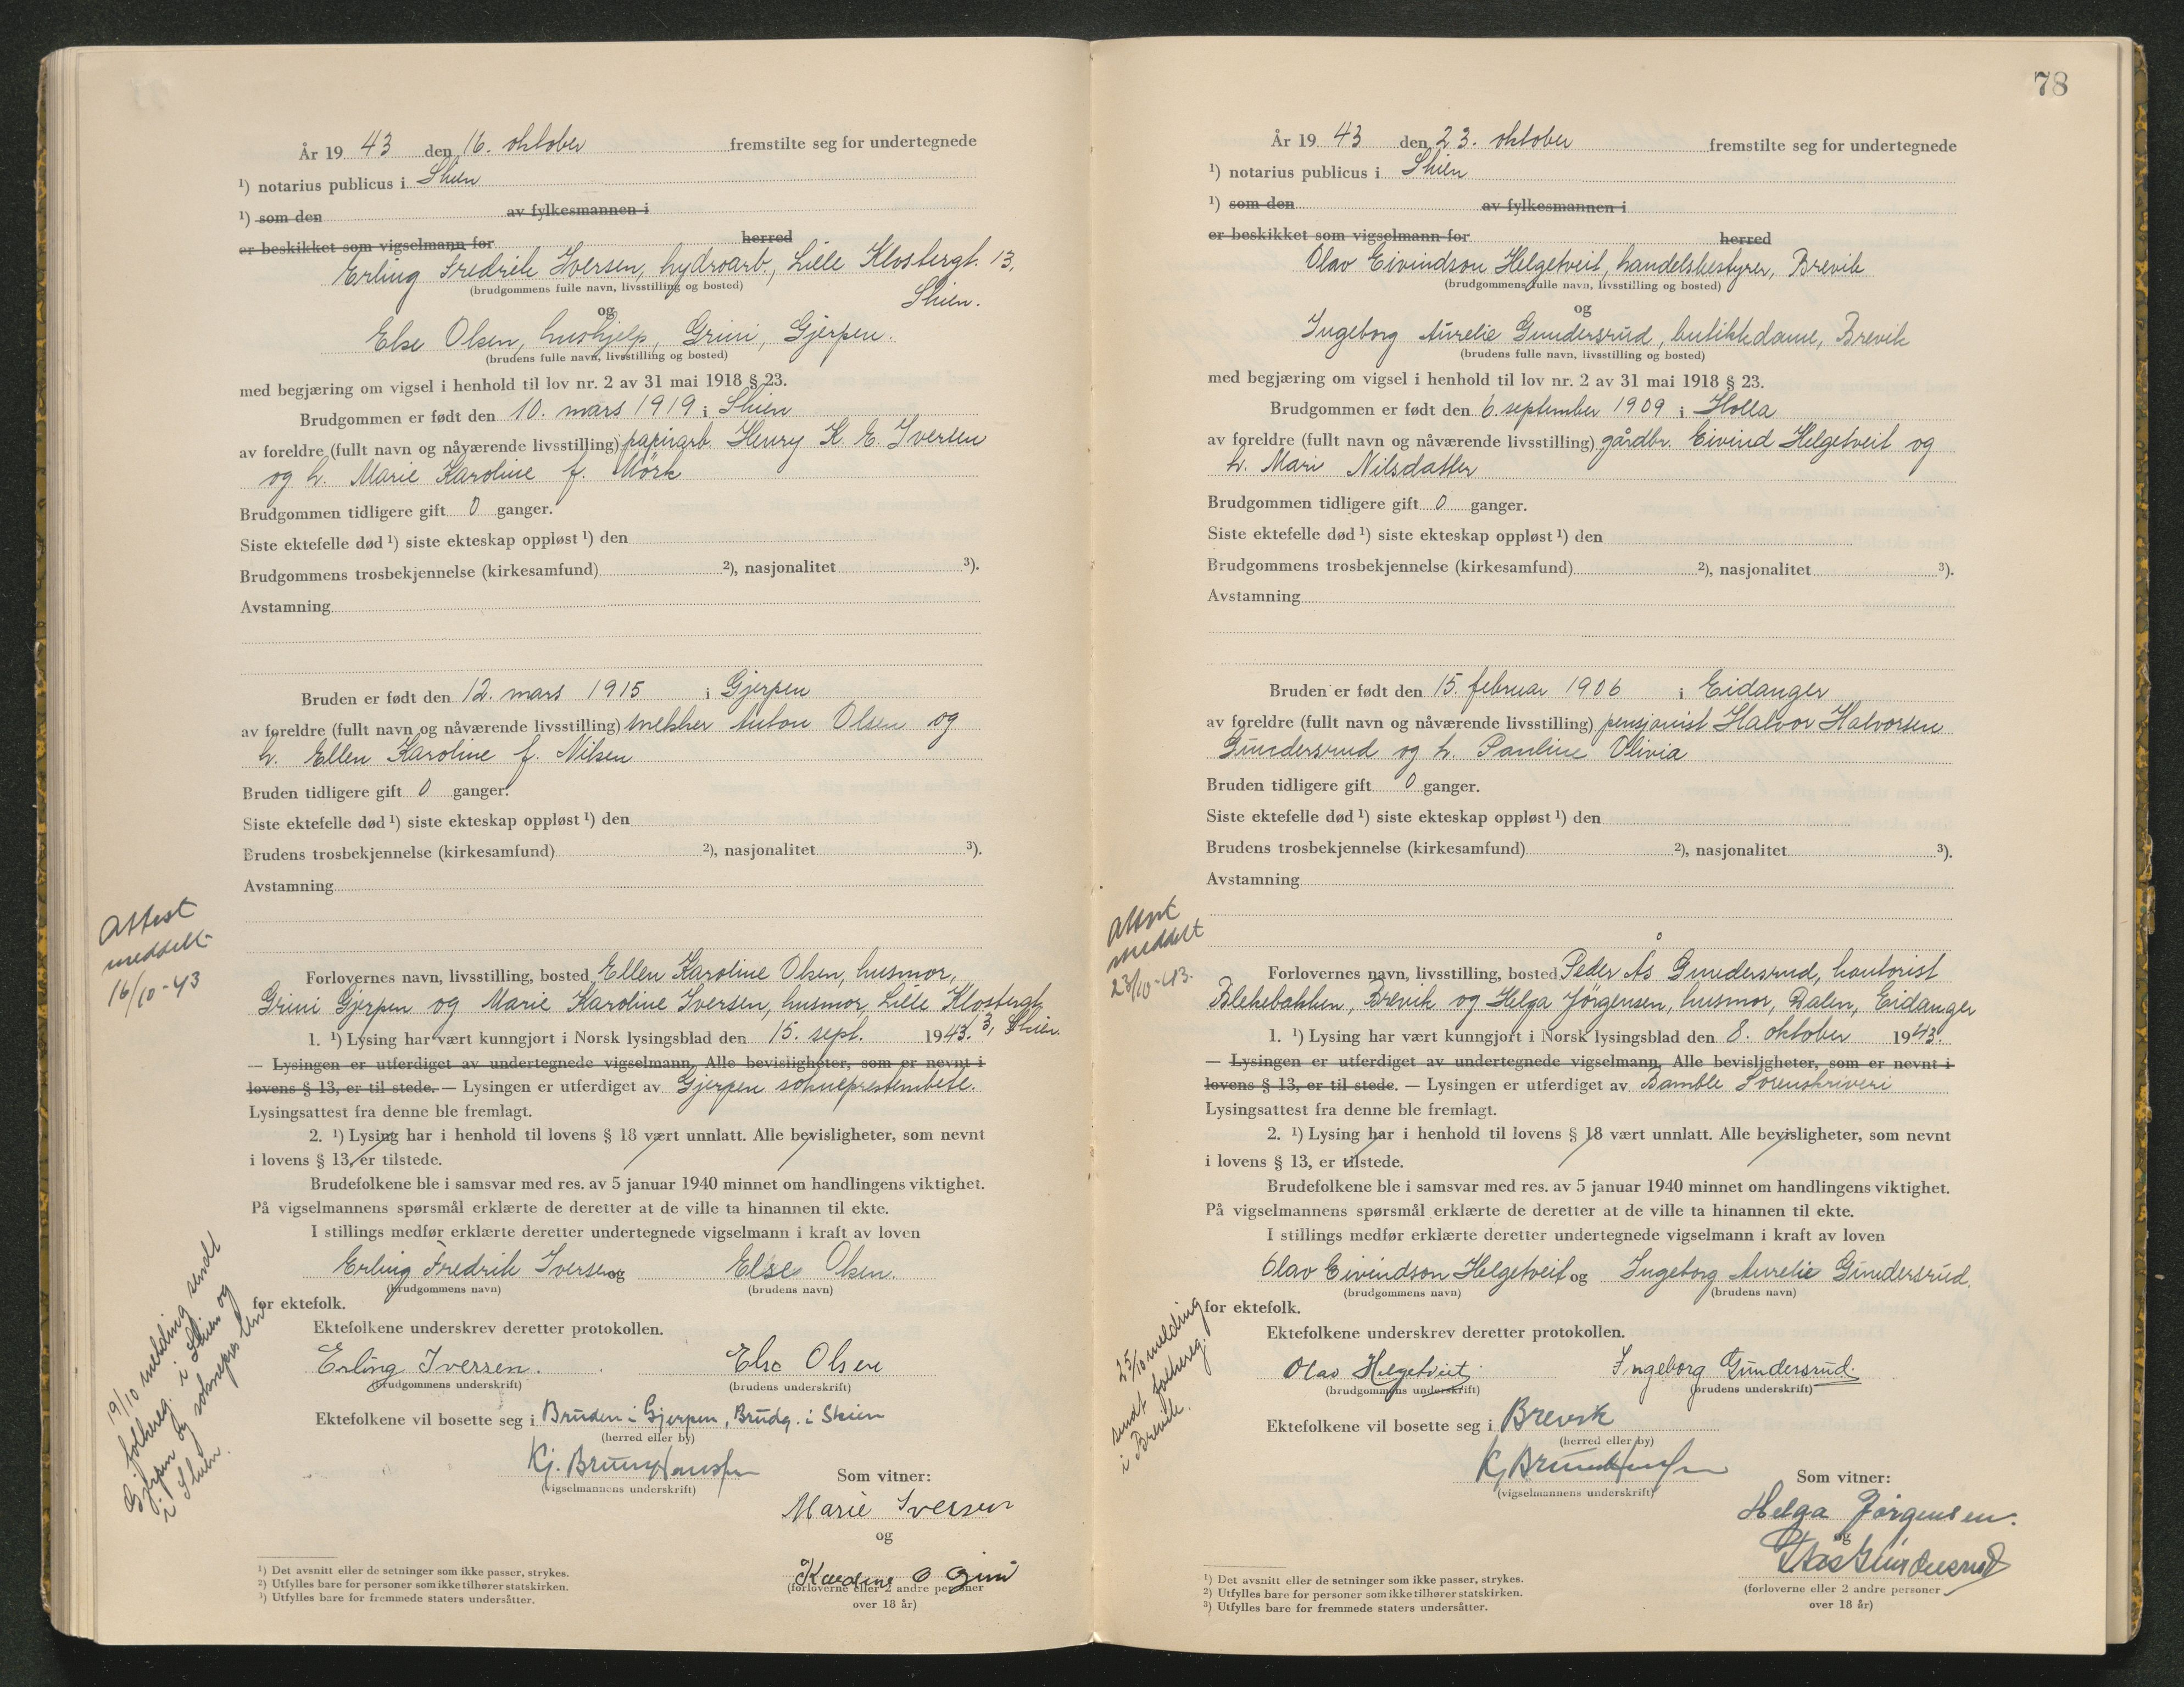 År 19 43 den 16. oktober fremstilte seg for undertegnede
¹) notarius publicus i Skien
¹) som den av fylkesmannen i
er beskikket som vigselmann for herred
Erling Fredrik Iversen, hydroarb., Lille Klostergt. 13,
Skien.
(brudgommens fulle navn, livsstilling og bosted)
og
Else Olsen, hushjelp, Grini, Gjerpen.
(brudens fulle navn, livsstilling og bosted)
med begjæring om vigsel i henhold til lov nr. 2 av 31 mai 1918 § 23.
Brudgommen er født den 10. mars 1919 i Skien
av foreldre (fullt navn og nåværende livsstilling) papirarb. Henry K. E. Iversen
og h. Marie Karoline f. Mörk
Brudgommen tidligere gift 0 ganger.
Siste ektefelle død ¹) siste ekteskap oppløst ¹) den
Brudgommens trosbekjennelse (kirkesamfund) ²), nasjonalitet ³).
Avstamning
Bruden er født den 12. mars 1915 i Gjerpen
av foreldre (fullt navn og nåværende livsstilling) snekker Anton Olsen og
h. Ellen Karoline f. Nilsen
Bruden tidligere gift 0 ganger.
Siste ektefelle død ¹) siste ekteskap oppløst ¹) den
Brudens trosbekjennelse (kirkesamfund) ²), nasjonalitet ³).
Avstamning
Attest
meddelt
16/10-43
Forlovernes navn, livsstilling, bosted Ellen Karoline Olsen, husmor,
Grini Gjerpen og Marie Karoline Iversen, husmor, Lille Klostergt.
1. ¹) Lysing har vært kunngjort i Norsk lysingsblad den 15. sept. 1943. 3, Skien.
— Lysingen er utferdiget av undertegnede vigselmann, Alle bevisligheter, som er nevnt i
lovens § 13, er til stede. — Lysingen er utferdiget av Gjerpen sokneprestembete.
Lysingsattest fra denne ble fremlagt.
2. ¹) Lysing har i henhold til lovens § 18 vært unnlatt. Alle bevisligheter, som nevnt
i lovens § 13, er tilstede.
Brudefolkene ble i samsvar med res. av 5 januar 1940 minnet om handlingens viktighet.
På vigselmannens spørsmål erklærte de deretter at de ville ta hinannen til ekte.
I stillings medfør erklærte deretter undertegnede vigselmann i kraft av loven
Erling Fredrik Iversen og Else Olsen.
(brudgommens navn) (brudens navn)
for ektefolk.
Ektefolkene underskrev deretter protokollen.
Erling Iversen. Else Olsen
(brudgommens underskrift) (brudens underskrift)
Ektefolkene vil bosette seg i Bruden i Gjerpen, Brudg. i Skien
(herred eller by)
Kj. Bruun Hansen
(vigselmannens underskrift)
Som vitner:
Marie Iversen
og
Karoline O Grini
(forloverne eller 2 andre personer
over 18 år)
19/10 melding sendt
folkereg. i Skien og
Gjerpen og soknepresten
i Skien.
¹) Det avsnitt eller de setninger som ikke passer, strykes.
²) Utfylles bare for personer som ikke tilhører statskirken.
³) Utfylles bare for fremmede staters undersåtter.
78
År 19 43 den 23. oktober fremstilte seg for undertegnede
¹) notarius publicus i Skien
¹) som den av fylkesmannen i
er beskikket som vigselmann for herred
Olav Eivindson Helgetveit, handelsbestyrer, Brevik
(brudgommens fulle navn, livsstilling og bosted)
og
Ingeborg Aurelie Gundersrud, butikkdame, Brevik
(brudens fulle navn, livsstilling og bosted)
med begjæring om vigsel i henhold til lov nr. 2 av 31 mai 1918 § 23.
Brudgommen er født den 6. september 1909 i Holla
av foreldre (fullt navn og nåværende livsstilling) gårdbr. Eivind Helgetveit og
h. Mari Nilsdatter
Brudgommen tidligere gift 0 ganger.
Siste ektefelle død ¹) siste ekteskap oppløst ¹) den
Brudgommens trosbekjennelse (kirkesamfund) ²), nasjonalitet ³).
Avstamning
Bruden er født den 15. februar 1906 i Eidanger
av foreldre (fullt navn og nåværende livsstilling) pensjonist Halvor Halvorsen
Gundersrud og h. Pauline Olivia
Bruden tidligere gift 0 ganger.
Siste ektefelle død ¹) siste ekteskap oppløst ¹) den
Brudens trosbekjennelse (kirkesamfund) ²), nasjonalitet ³).
Avstamning
Attest
meddelt
23/10-43.
Forlovernes navn, livsstilling, bosted Peder Ås Gundersrud, kontorist
Blekebakken, Brevik og Helga Jörgensen, husmor, Dalen, Eidanger
1. ¹) Lysing har vært kunngjort i Norsk lysingsblad den 8. oktober 1943.
— Lysingen er utferdiget av undertegnede vigselmann, Alle bevisligheter, som er nevnt i
lovens § 13, er til stede. — Lysingen er utferdiget av Bamble Sorenskriveri
Lysingsattest fra denne ble fremlagt.
2. ¹) Lysing har i henhold til lovens § 18 vært unnlatt. Alle bevisligheter, som nevnt
i lovens § 13, er tilstede.
Brudefolkene ble i samsvar med res. av 5 januar 1940 minnet om handlingens viktighet.
På vigselmannens spørsmål erklærte de deretter at de ville ta hinannen til ekte.
I stillings medfør erklærte deretter undertegnede vigselmann i kraft av loven
Olav Eivindson Helgetveit og Ingeborg Aurelie Gundersrud.
(brudgommens navn) (brudens navn)
for ektefolk.
Ektefolkene underskrev deretter protokollen.
Olav Helgetveit Ingeborg Gundersrud.
(brudgommens underskrift) (brudens underskrift)
Ektefolkene vil bosette seg i Brevik
(herred eller by)
Kj Bruun Hansen
(vigselmannens underskrift)
Som vitner:
Helga Jörgensen.
og
Gundersrud
(forloverne eller 2 andre personer
over 18 år)
25/10 melding
sendt folkereg.
i Brevik.
¹) Det avsnitt eller de setninger som ikke passer, strykes.
²) Utfylles bare for personer som ikke tilhører statskirken.
³) Utfylles bare for fremmede staters undersåtter.